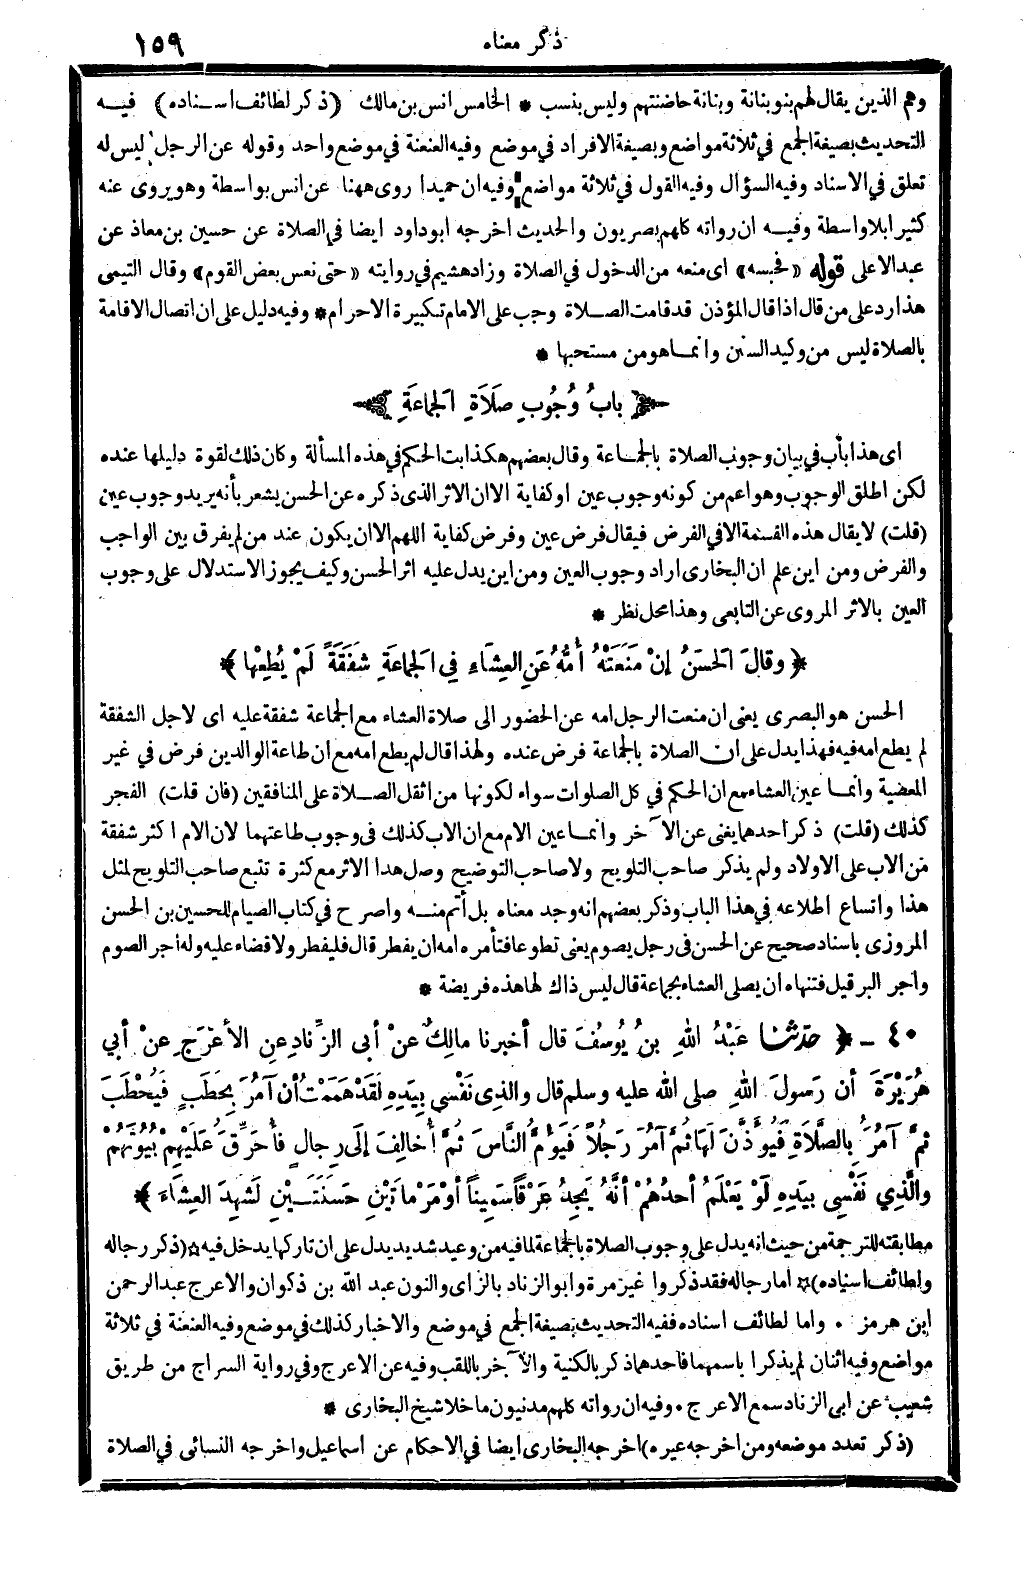 ذكر معناه
١٥٩
وهم الذين يقال لهم بنو بنانة وبنانة حاضنتهم وليس بنسب * الخامس انس بن مالك (ذكر لطائف اسناده) فيه
التحديث بصيغة الجمع في ثلاثة مواضع وبصيغة الافراد في موضع وفيه العنعنة في موضع واحد وقوله عن الرجل ليس له
تعلق في الاسناد وفيه السؤال وفيه القول في ثلاثة مواضع وفيه ان حميدا روى ههنا عن انس بواسطة وهو يروى عنه
كثيرا بلا واسطة وفيه ان رواته كلهم بصريون والحديث اخرجه ابو داود ايضا في الصلاة عن حسين بن معاذ عن
عبد الاعلى قوله «فحبسه» اى منعه من الدخول في الصلاة وزاد هشيم في روايته «حتى نعس بعض القوم» وقال التيمى
هذا رد على من قال اذا قال المؤذن قد قامت الصلاة وجب على الامام تكبيرة الاحرام * وفيه دليل على ان اتصال الاقامة
بالصلاة ليس من وكيد السنن وانما هو من مستحبها *
﴿ بابُ وُجُوبِ صلَاَةِ الجماعَةِ ﴾
اى هذا باب في بيان وجوب الصلاة بالجماعة وقال بعضهم هكذا بت الحكم في هذه المسألة وكان ذلك لقوة دليلها عنده
لكن اطلق الوجوب وهو اعم من كونه وجوب عين او كفاية الا ان الاثر الذى ذكره عن الحسن يشعر بأنه يريد وجوب عين
(قلت) لا يقال هذه القسمة الا في الفرض فيقال فرض عين وفرض كفاية اللهم الا ان يكون عند من لم يفرق بين الواجب
والفرض ومن اين علم ان البخارى اراد وجوب العين ومن اين يدل عليه اثر الحسن وكيف يجوز الاستدلال على وجوب
العين بالاثر المروى عن التابعى وهذا محل نظر *
﴿ وقالَ الحَسَنُ إنْ مَنَعَتْهُ أُمُّهُ عَنِ العِشَاءِ فِي الجماعَةِ شفَقَةً لَمْ يُطِعْها ﴾
الحسن هو البصرى يعنى ان منعت الرجل امه عن الحضور الى صلاة العشاء مع الجماعة شفقة عليه اى لاجل الشفقة
لم يطع امه فيه فهذا يدل على ان الصلاة بالجماعة فرض عنده ولهذا قال لم يطع امه مع ان طاعة الوالدين فرض في غير
المعصية وانما عين العشاء مع ان الحكم في كل الصلوات سواء لكونها من اثقل الصلاة على المنافقين (فان قلت) الفجر
كذلك (قلت) ذكر احدهما يغنى عن الآخر وانما عين الام مع ان الاب كذلك فى وجوب طاعتهما لان الام اكثر شفقة
من الاب على الاولاد ولم يذكر صاحب التلويح ولا صاحب التوضيح وصل هذا الاثر مع كثرة تتبع صاحب التلويح لمثل
هذا واتساع اطلاعه في هذا الباب وذكر بعضهم انه وجد معناه بل أتم منه واصرح في كتاب الصيام للحسين بن الحسن
المروزى باسناد صحيح عن الحسن فى رجل يصوم يعنى تطوعا فتأمره امه ان يفطر قال فليفطر ولا قضاء عليه وله اجر الصوم
واجر البر قيل فتنهاه ان يصلى العشاء بجماعة قال ليس ذاك لها هذه فريضة *
٤٠ - ﴿ حدثنا عَبْدُ اللهِ بنُ يُوسُفَ قال أخبرنا مالِكٌ عنْ أبى الزِّنادِ عنِ الأعْرَجِ عنْ أبي
هُرَيْرَةَ أن رَسولَ اللهِ صلى الله عليه وسلم قال والذِى نَفْسي بِيَدِهِ لقَدْ هَمَمْتُ أن آمُرَ بِحَطَبٍ فَيُحْطَبَ
ثمَّ آمُرَ بالصَّلاَةِ فَيُؤَذَّنَ لَهَا ثُمَّ آمُرَ رَجُلاً فَيَؤُمَّ النَّاسَ ثُمَّ أُخالِفَ إلَى رِجالٍ فأُحَرِّقَ عَلَيْهِمْ بُيُوتَهُمْ
والَّذِي نَفْسِي بِيَدِهِ لوْ يَعْلَمُ أحدُهُمْ أنَّهُ يَجِدُ عَرْقاً سَمِيناً أوْ مَرْماتَيْنِ حَسَنَتَيْنِ لَشَهِدَ العِشَاءَ ﴾
مطابقته للترجمة من حيث انه يدل على وجوب الصلاة بالجماعة لما فيه من وعيد شديد يدل على ان تاركها يدخل فيه *(ذكر رجاله
ولطائف اسناده)* اما رجاله فقد ذكروا غير مرة وابو الزناد بالزاى والنون عبد الله بن ذكوان والاعرج عبد الرحمن
ابن هرمز . واما لطائف اسناده ففيه التحديث بصيغة الجمع في موضع والاخبار كذلك في موضع وفيه العنعنة في ثلاثة
مواضع وفيه اثنان لم يذكرا باسمهما فاحدهما ذكر بالكنية والآخر باللقب وفيه عن الاعرج وفي رواية السراج من طريق
شعيب عن ابى الزناد سمع الاعرج . وفيه ان رواته كلهم مدنيون ما خلا شيخ البخارى *
(ذكر تعدد موضعه ومن اخرجه غيره) اخرجه البخارى ايضا في الاحكام عن اسماعيل واخرجه النسائى في الصلاة